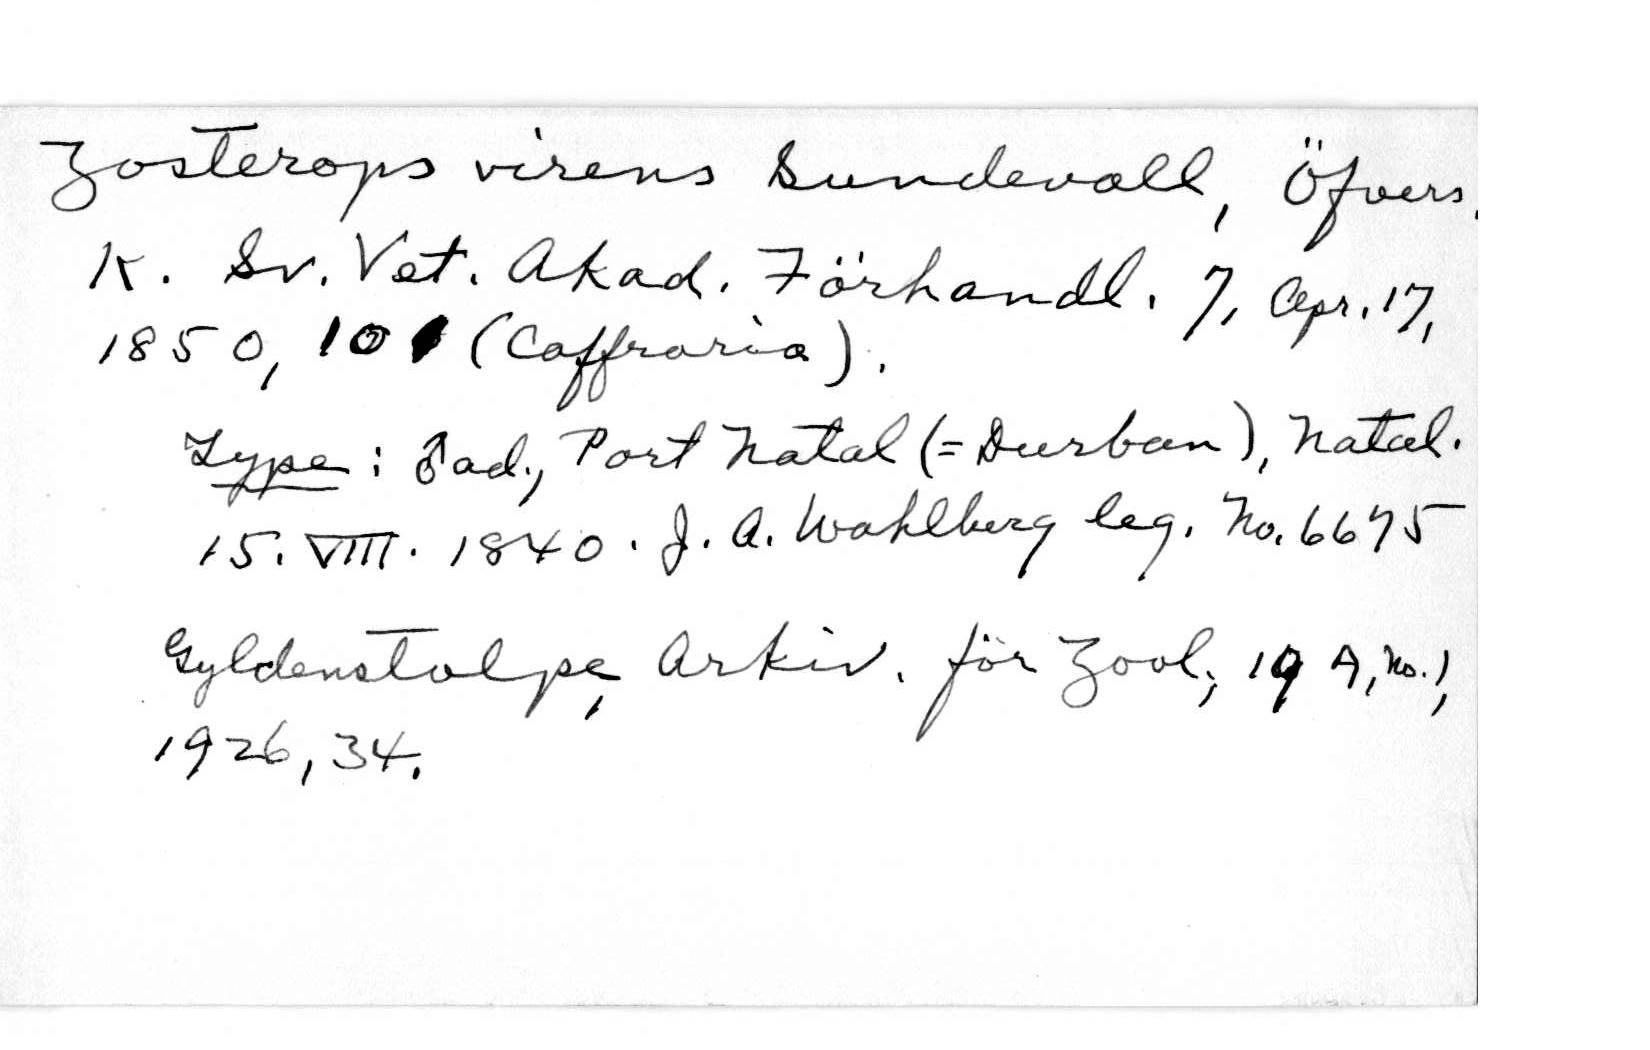 Zosterops virens Sundevall, Öfvers.
K. Sv. Vet. Akad. Förhandl. 7, Apr. 17,
1850, 101 (Caffraria).
Type: ♂ ad., Port Natal (= Durban), Natal.
15. VIII. 1840. J. A. Wahlberg leg. No. 6675
Gyldenstolpe, Arkiv. för Zool., 19 A, No. 1,
1926, 34.